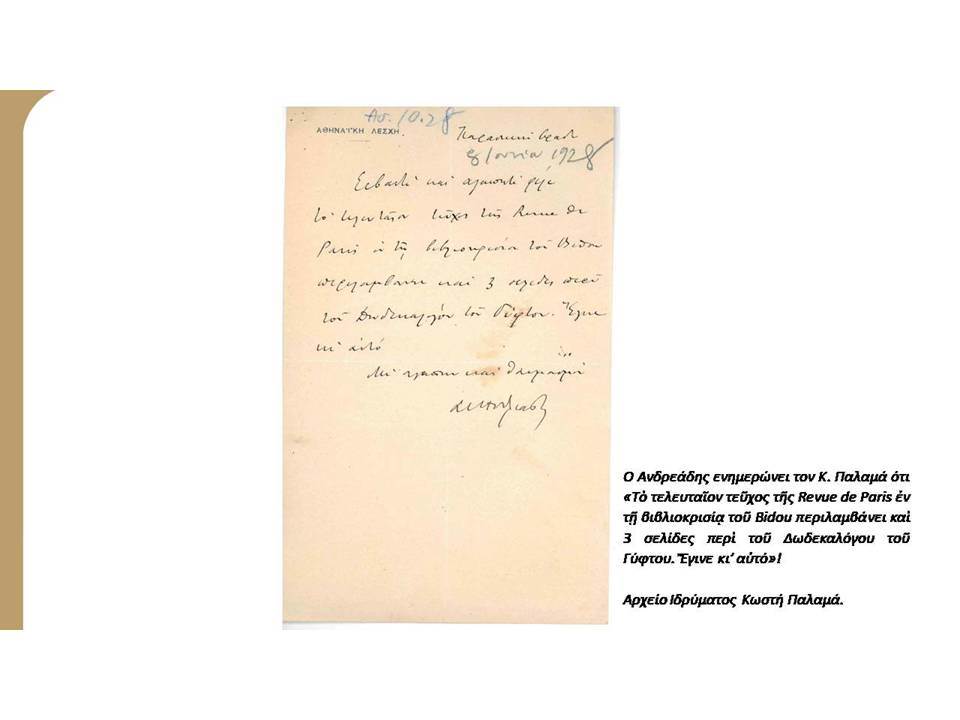 Αρ. 10.28
ΑΘΗΝΑΪΚΗ ΛΕΣΧΗ.
Παρασκευή βράδυ
8 Ιουνίου 1928
Σεβαστέ καὶ ἀγαπητέ φίλε
Τὸ τελευταῖον τεῦχος τῆς Revue de
Paris ἐν τῇ βιβλιοκρισίᾳ τοῦ Bidou
περιλαμβάνει καὶ 3 σελίδες περὶ
τοῦ Δωδεκαλόγου τοῦ Γύφτου. Ἔγινε
κι' αὐτό
Μὲ ἀγάπην καὶ θαυμασμό
Ο Ανδρεάδης ενημερώνει τον Κ. Παλαμά ότι
«Τὸ τελευταῖον τεῦχος τῆς Revue de Paris ἐν
τῇ βιβλιοκρισίᾳ τοῦ Bidou περιλαμβάνει καὶ
3 σελίδες περὶ τοῦ Δωδεκαλόγου τοῦ
Γύφτου. Ἔγινε κι' αὐτό»!
Αρχείο Ιδρύματος Κωστή Παλαμά.